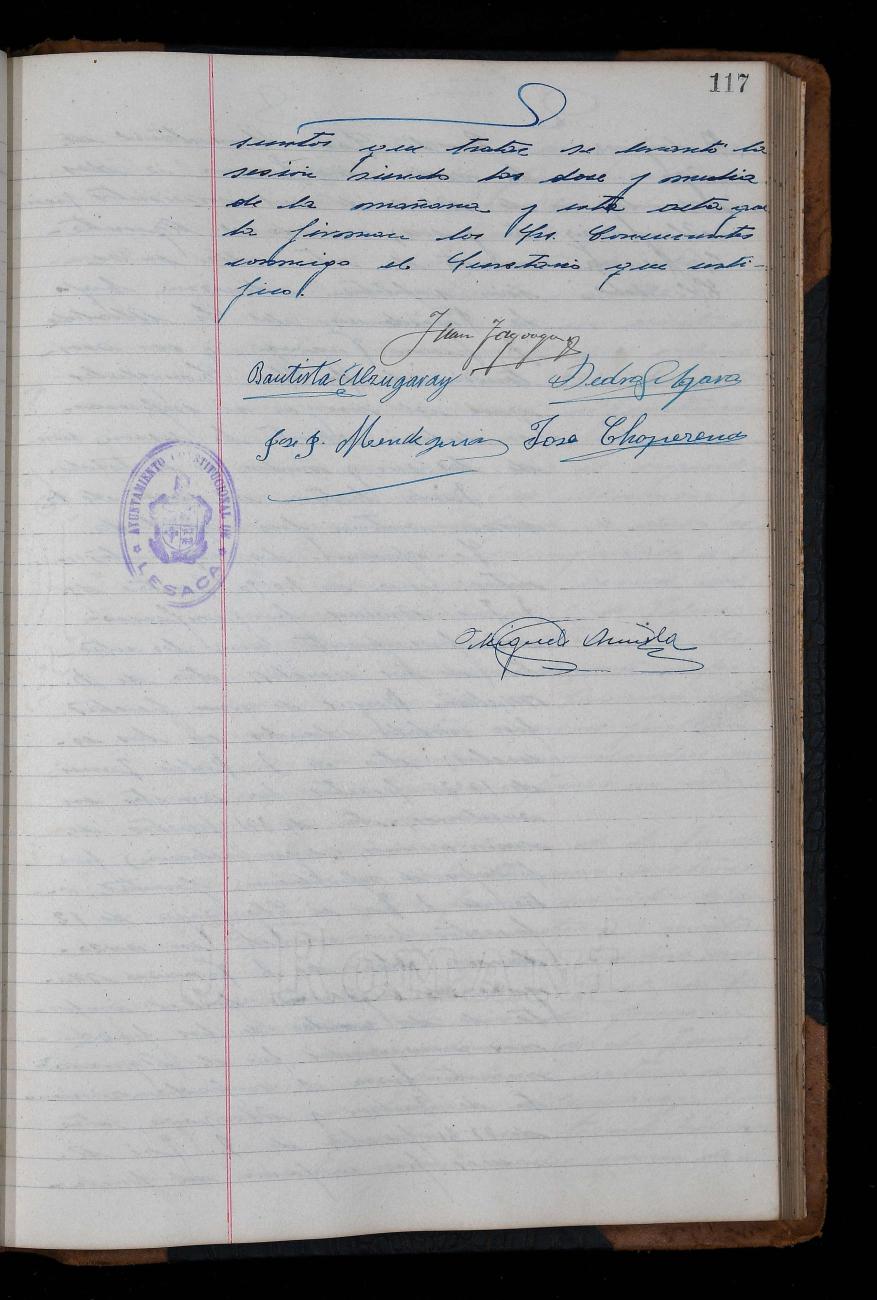 117
suntos que tratar se levantó la
sesión siendo las dose y media
de la mañana y esta acta que
la firman los Srs. Concurrentes
conmigo el Secretario que certi-
fico.
Juan
Bautista Alzugaray Pedro
José J. Mendiguia Jose Choperena
AYUNTAMIENTO CONSTITUCIONAL DE
LESACA
Miguel